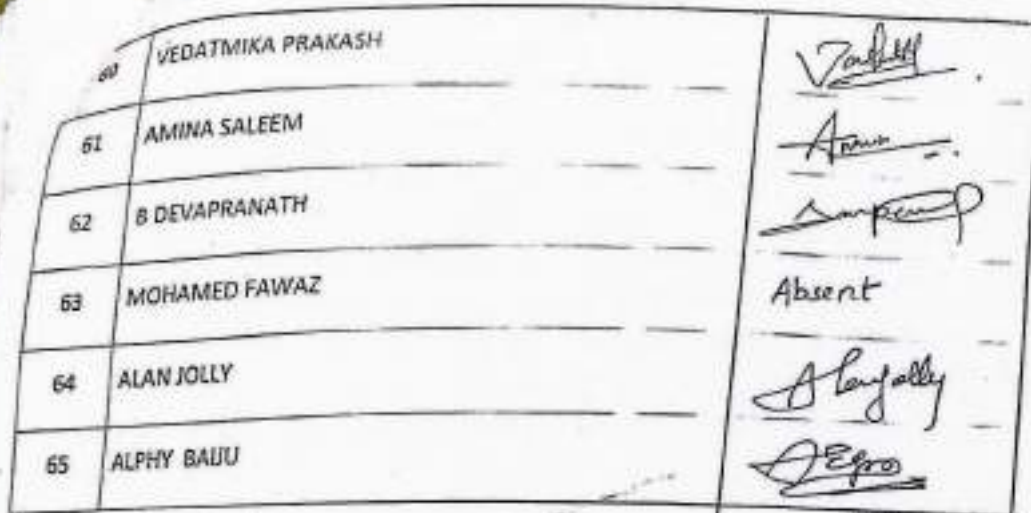 60 VEDATMIKA PRAKASH
61 AMINA SALEEM
62 B DEVAPRANATH
63 MOHAMED FAWAZ Absent
64 ALAN JOLLY Alanjolly
65 ALPHY BAIJU